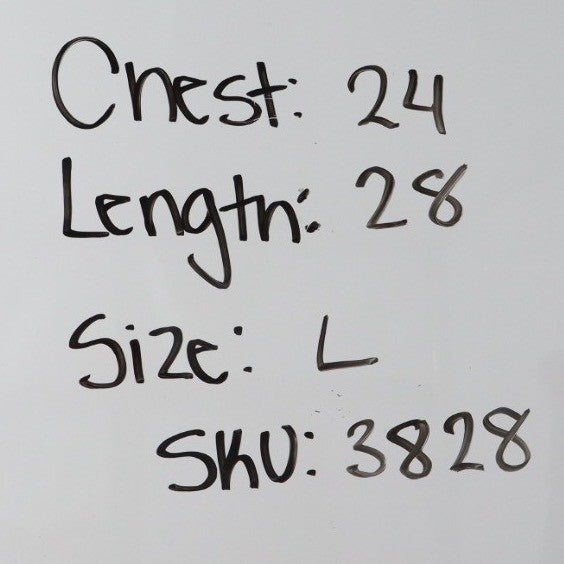 Chest: 24
Length: 28
Size: L
SKU: 3828